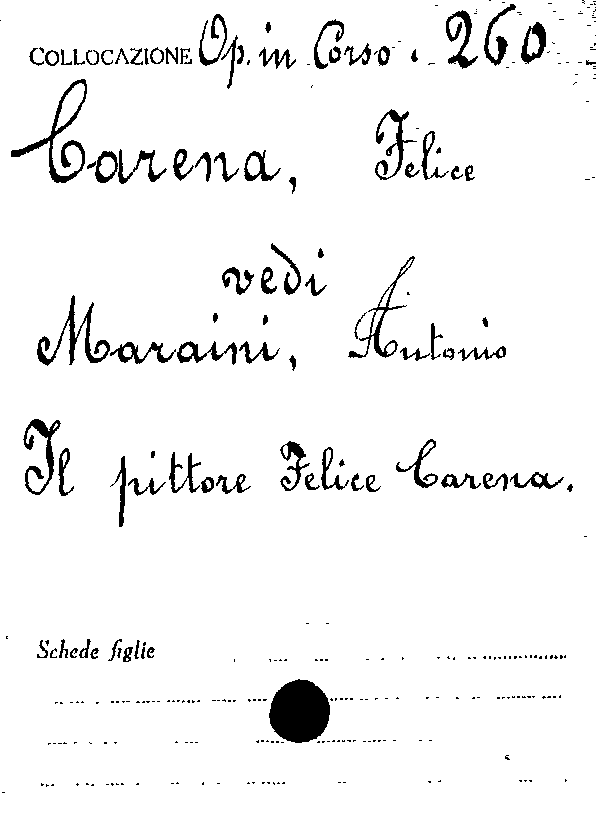 COLLOCAZIONE Op. in Corso. 260
Carena, Felice
vedi
Maraini, Antonio
Il pittore Felice Carena.
Schede figlie